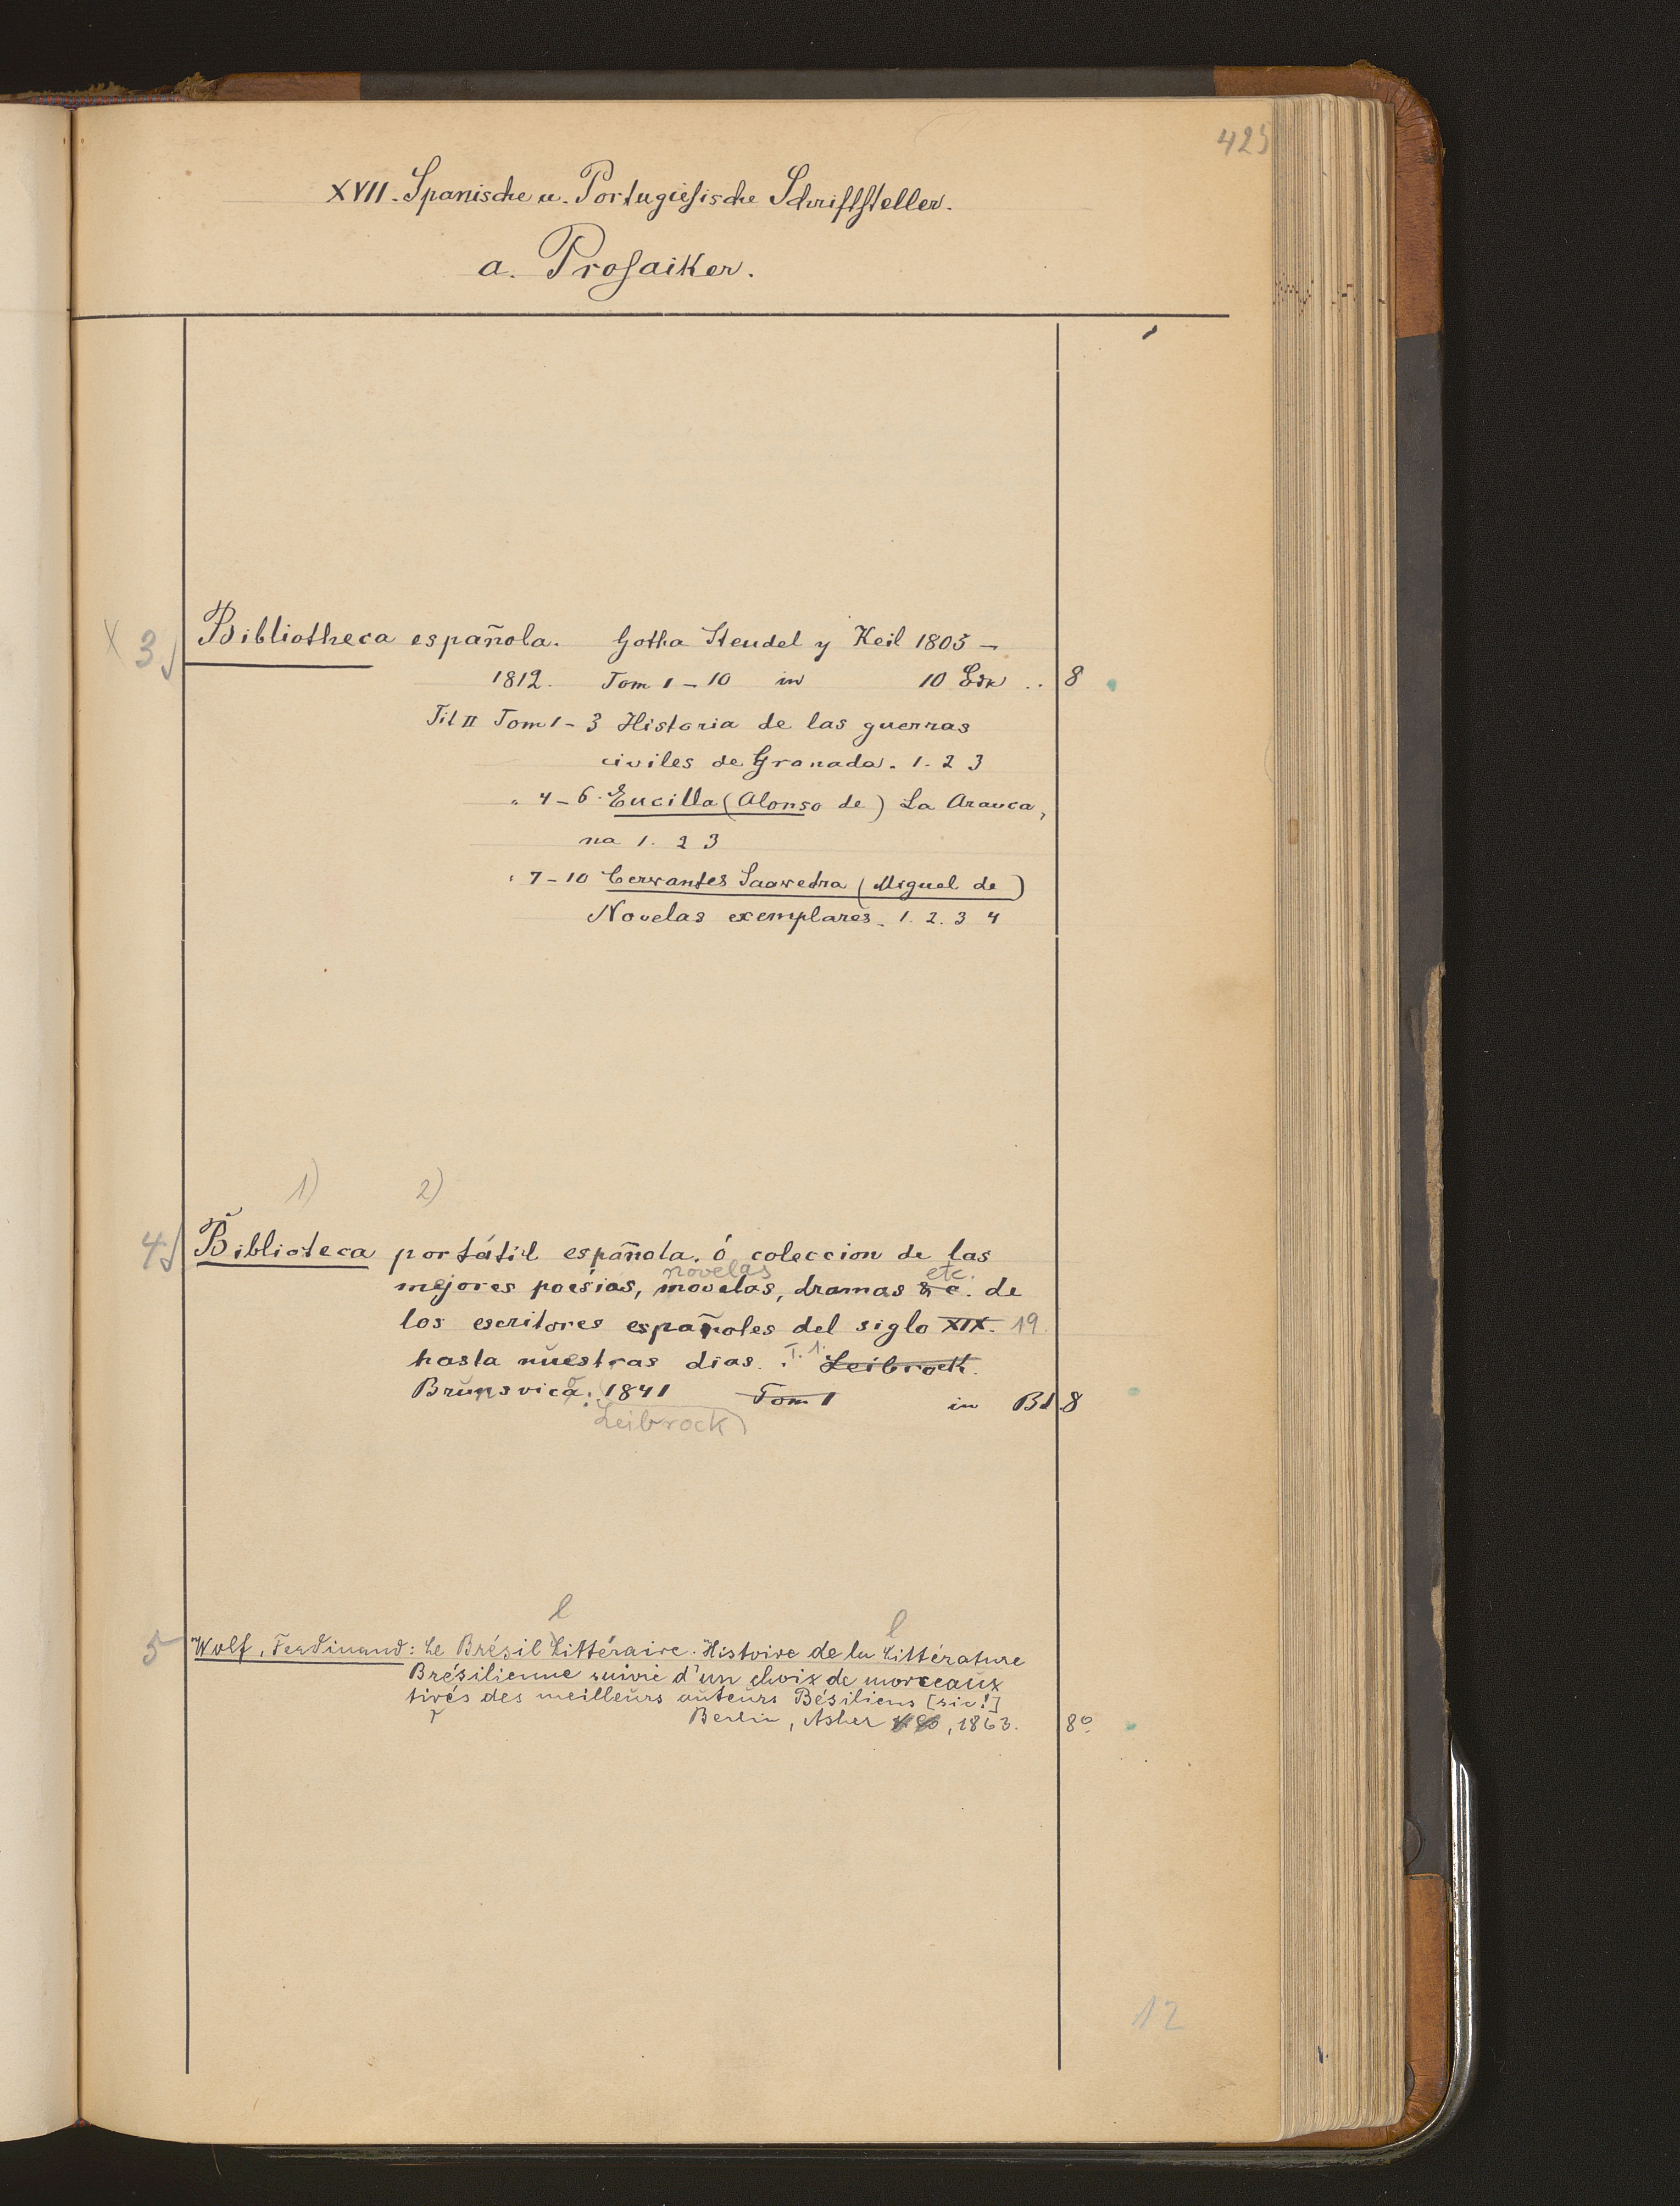 425
XVII. Spanische u. Portugiesische Schriftsteller.
a. Prosaiker.
X 3 Bibliotheca española. Gotha Steudel y Keil 1805 –
1812. Tom 1 – 10 in 10 Bdn .. 8
Tit II Tom 1 – 3 Historia de las guerras
civiles de Granada. 1. 2 3
" 4 – 6. Eucilla (Alonso de) La Arauca,
na 1. 2 3
" 7 – 10 Cervantes Saavedra (Miguel de)
Novelas exemplares. 1. 2. 3 4
1) 2)
4 Biblioteca portátil española. ó coleccion de las
novelas etc.
mejores poesias, movelas, dramas & c. de
los escritores españoles del siglo XIX. 19.
hasta nuestras dias. T. 1. Leibrock.
Brunsvica. 1841 Tom 1 in Bd 8
Leibrock
l l
5 Wolf, Ferdinand: Le Brésil Littéraire. Histoire de la Littérature
Brésilienne suivie d'un choix de morceaux
tirés des meilleurs auteurs Bésiliens [sic!]
Berlin, Asher , 1863. 8°
12